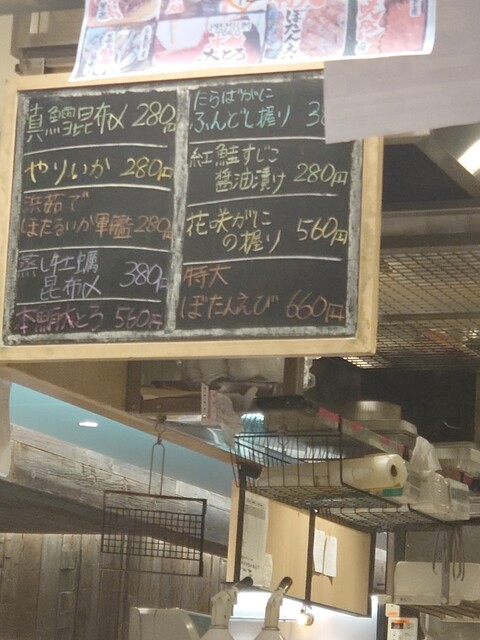 ぼたん
大とろ
真鯛昆布〆 280円
やりいか 280円
浜茹で
ほたるいか軍艦 280円
蒸し牡蠣
昆布〆 380円
本鮪大とろ 560円
たらばがに
ふんどし握り 3
紅鮭すじこ
醤油漬け 280円
花咲がに
の握り 560円
特大
ぼたんえび 660円